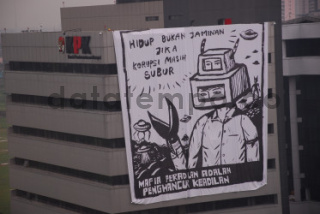 KPK
HIDUP BUKAN JAMINAN
JIKA
KORUPSI MASIH
SUBUR
datatempo.co
MAFIA PERADILAN ADALAH
PENGHANCUR KEADILAN